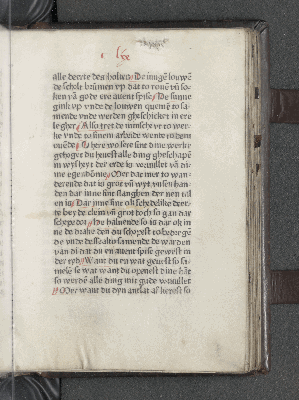 lxx
alle deerte des holtes De iungē louwē
de schole brūmen vp dat to rouē vñ so-
ken vā gode ere auent spise De sunne
gink vp vnde de louwen quemē to sa-
mende vnde werden gheschicket in ere
legher Also tret de minsche vt to wer-
ke vnde to sinem arbeide wente to dem
auēde O here wo sere sint dine werke
gehoget du heuest alle ding gheschapē
in wysheyt de erde is vervullet vā di-
me egēdōme Der mer to wan-
derende dat is grot vñ wyt henden
dar inne sint slanghen der nen tal
en is Dar inne sint ok schedelike deer-
te dey clein vñ grot dar
schepe so is dar ok in
ne de drake den du schopest to bedregē
de vnde desse alto samende de wardē
van di dat du en auent spise geuest in
der tyd Want du en wat geuest so sa-
mele se wat want du openest dine hāt
so werdē alle ding mit gude vervullet
Mer want du dyn antlat af kerest so